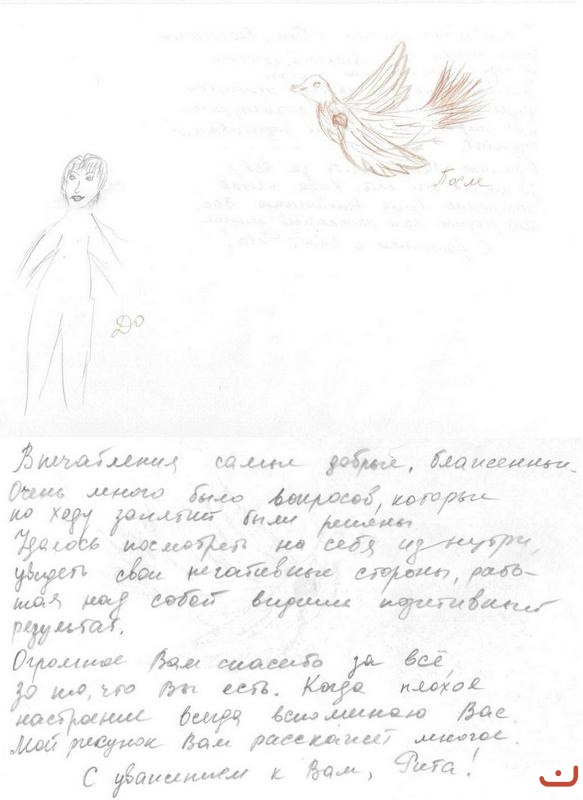 После
До
Впечатления самые добрые, блаженные.
Очень много было вопросов, которые
по ходу занятий были решены.
Удалось посмотреть на себя изнутри,
увидеть свои негативные стороны, рабо-
тая над собой видим позитивный
результат.
Огромное Вам спасибо за всё,
за то, что Вы есть. Когда плохое
настроение всегда вспоминаю Вас.
Мой рисунок Вам расскажет многое.
С уважением к Вам, Рита!